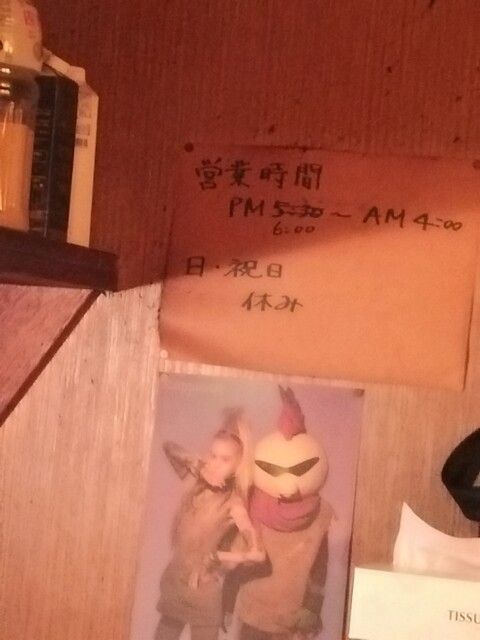 営業時間
PM 5:30 ~ AM 4:00
6:00
日・祝日
休み
TISSU